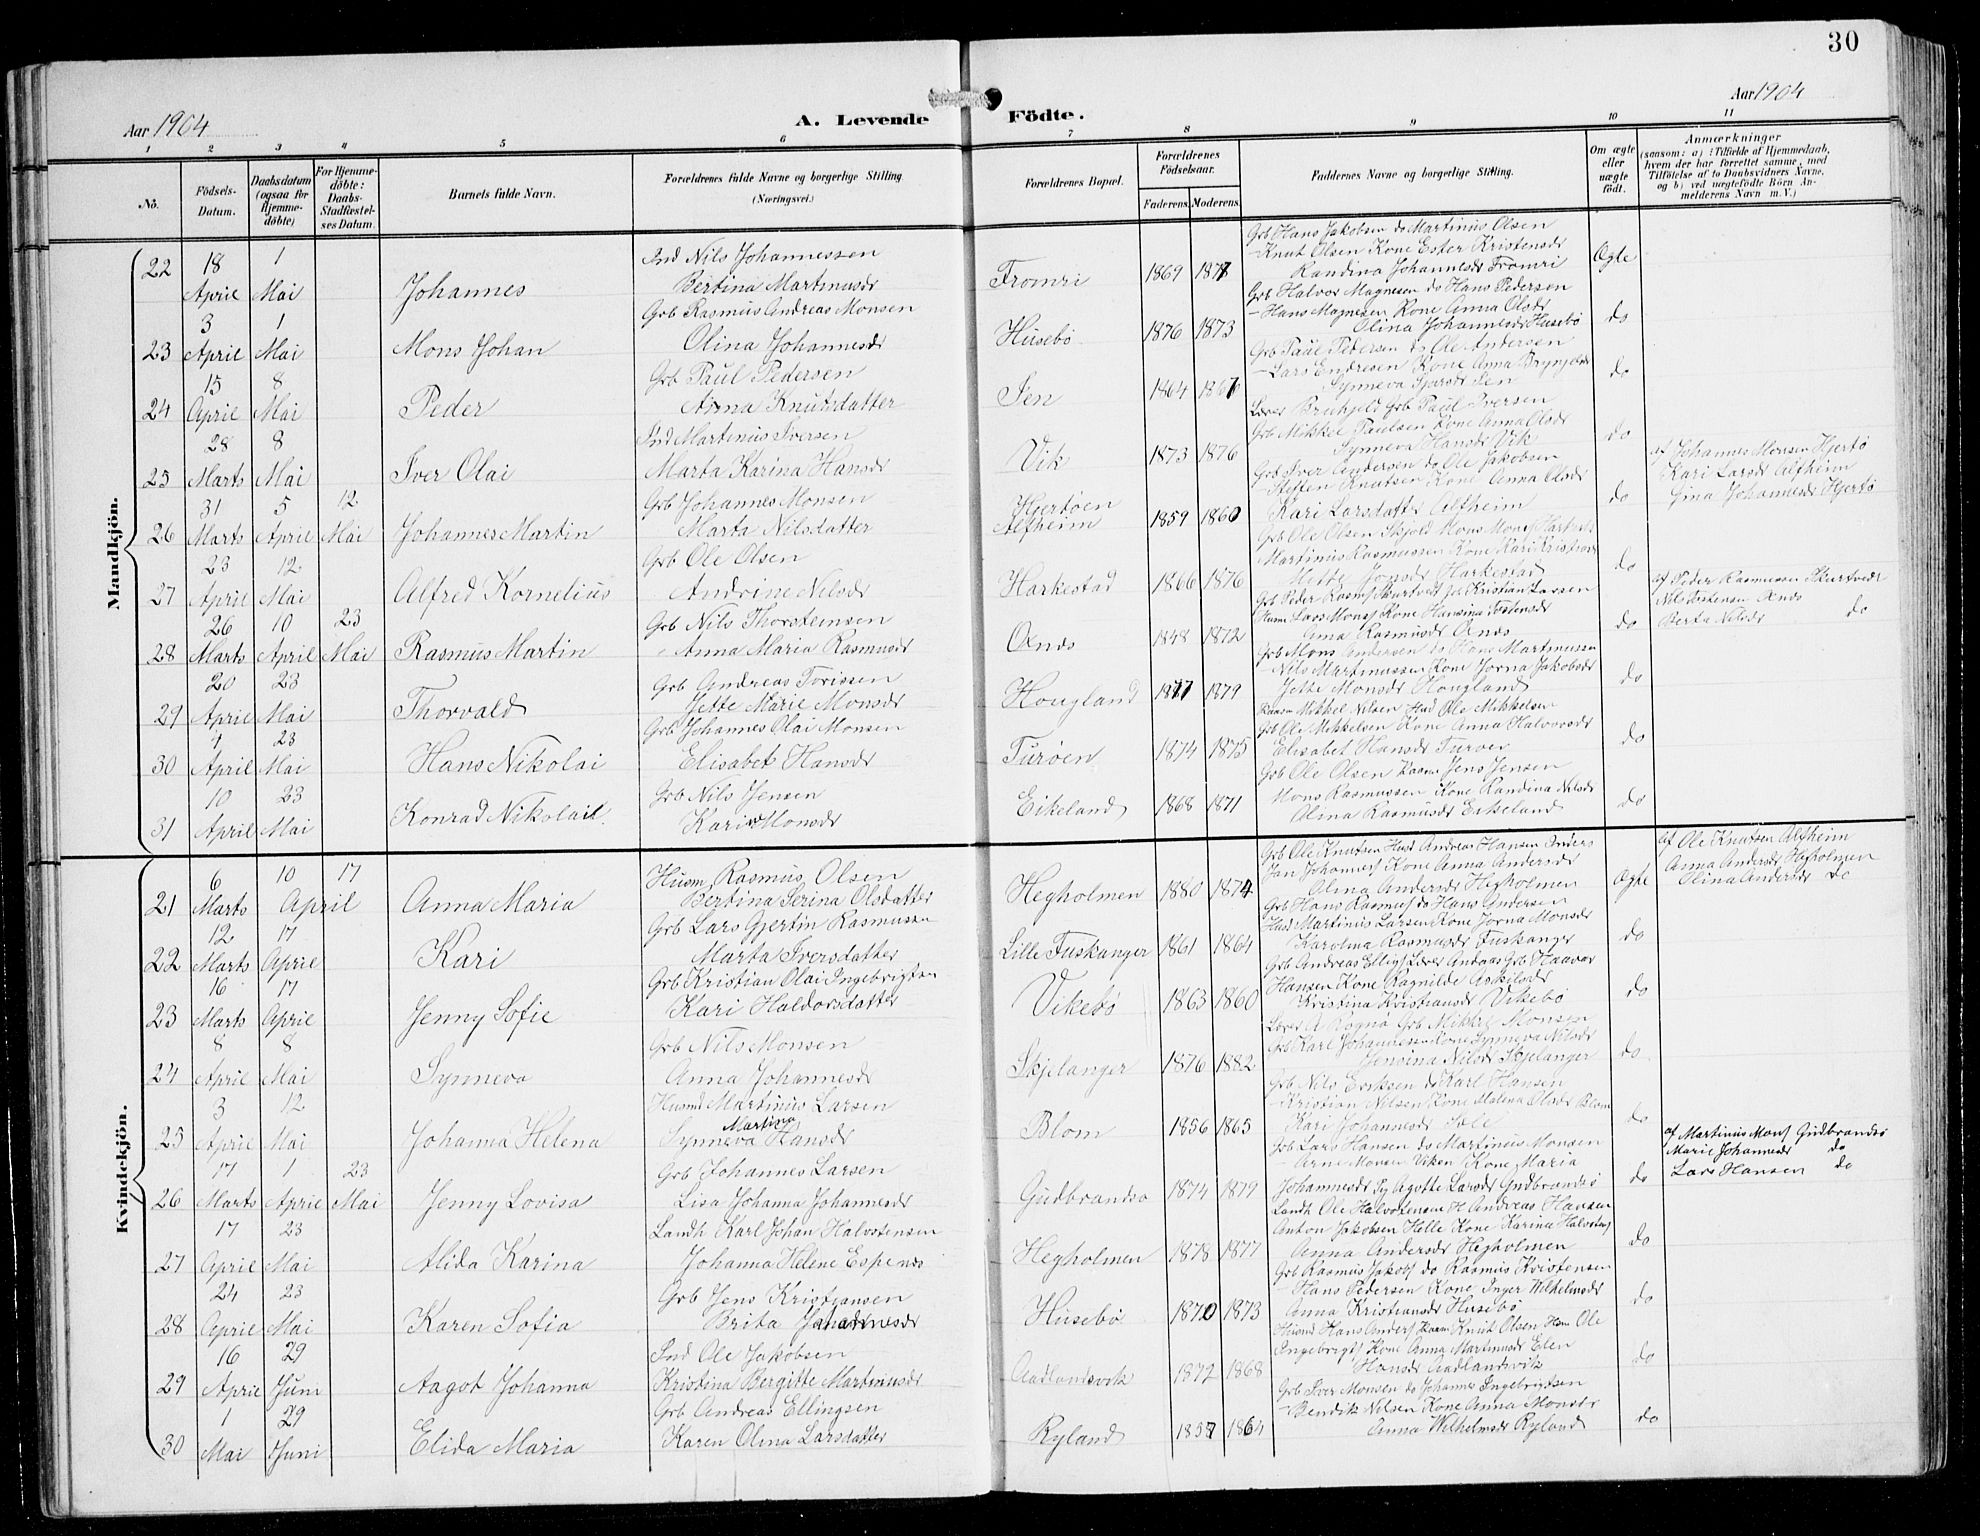 30
Aar 1904 A. Levende Födte. Aar 1904
1 2 3 4 5 6 7 8 9 10 11
No.
Födsels-Datum.
Daabsdatum (ogsaa for Hjemme-döbte)
For Hjemme-döbte: Daabs-Stadfæstel-ses Datum.
Barnets fulde Navn.
Forældrenes fulde Navne og borgerlige Stilling. (Næringsvei.)
Forældrenes Bopæl.
Forældrenes Födselsaar.
Faderens. Moderens.
Faddernes Navne og borgerlige Stilling.
Om ægte eller uægte födt.
Anmærkninger
(saasom: a) i Tilfælde af Hjemmedaab, hvem der har forrettet samme, med Tilföielse af to Daabsvidners Navne, og b) ved uægtefödte Börn Anmelderens Navn m. V.)
Mandkjön.
22 18 April 1 Mai Johannes Ind Nils Johannessen Bertina Martinusdr Fromri 1869 1877 Grb Hans Jakobsen do Martinius Olsen
- Knut Olsen Kone Ester Kristensdr
Randina Johannesdr Fromri Ægte
23 3 April 1 Mai Mons Johan Grb Rasmus Andreas Monsen Olina Johannesdr Husebö 1876 1873 Grb Halvor Magnesen do Hans Pedersen
- Hans Magnesen Kone Anna Olsdr
Olina Johannesdr Husebö do
24 15 April 8 Mai Peder Grb Paul Pedersen Anna Knutsdatter Sen 1864 1867 Grb Paul Pedersen do Ole Andersen
- Lars Endresen Kone Anna Brynjelsdr
Synneva Iversdr Sen do
25 28 Marts 8 Mai Iver Olai Ind Martinus Iversen Marta Karina Hansdr Vik 1873 1876 Grb Paul Iversen
Grb Mikkel Paulsen Kone Anna Olsdr
Synneva Hansdr Vik do
26 31 Marts 5 April 12 Mai Johannes Martin Grb Johannes Monsen Marta Nilsdatter Hjertöen Alfheim 1859 1860 Grb Iver Andersen do Ole Jakobsen
- Steffen Knutsen Kone Anna Olsdr
Kari Larsdatter Alfheim do
af Johannes Monsen Hjertö
Kari Larsdr Alfheim
Gina Johannesdr Hjertö
27 23 April 12 Mai Alfred Kornelius Grb Ole Olsen Andrine Nilsdr Harkestad 1866 1876 Grb Ole Olsen Skjold Mons Mons Harkest
Martinus Rasmussen Kone Kari Kristiansdr
Mette Jonsdr Harkestad do
28 26 Marts 10 April 23 Mai Rasmus Martin Grb Nils Thorsteinsen Anna Maria Rasmusdr Ønes 1848 1872 Grb Peder Rasms Skurtvedt do Kristian Larsen
Husm Lars Monss Kone Hansina Torstensdr
Anna Rasmusdr Ønes do
af Peder Rasmussen Skurtvedt
Nils Torstensen Ønes
Berta Nilsdr do
29 20 April 23 Mai Thorvald Grb Andreas Torissen Jette Marie Monsdr Hougland 1877 1879 Grb Mons Andersen do Hans Martinussen
- Nils Martinussen Kone Jorna Jakobsdr
Jette Monsdr Hougland do
30 4 April 23 Mai Hans Nikolai Grb Johannes Olai Monsen Elisabet Hansdr Turöen 1874 1875 Mikkel Nilsen Ole Mikkelsen
Grb Ole Mikkelsen Kone Anna Halvorsdr
Elisabet Hansdr Turöen do
31 10 April 23 Mai Konrad Nikolai Grb Nils Jensen Kari Monsdr Eikeland 1868 1871 Grb Ole Olsen Jens Jensen
Mons Rasmussen Kone Randina Nilsdr
Olina Rasmusdr Eikeland do
Kvindekjön.
21 6 Marts 10 17 April Anna Maria Husm Rasmus Olsen Bertina Serina Olsdatter Hegholmen 1880 1874 Grb Ole Knutsen Husm Andreas Hansen
Jan Johannes Kone Anna Andersdr
Olina Andersdr Hegholmen Ægte
af Ole Knutsen Alfheim
Anna Andersdr Hegholmen
Olina Andersdr do
22 12 Marts 17 April Kari Grb Lars Gjertin Rasmussen Marta Iversdatter Lille Fuskanger 1861 1864 Grb Hans Rasmus do Hans Andersen
Husm Martinus Larsen Kone Jorna Monsdr
Karolina Rasmusdr Fuskanger do
23 16 Marts 17 April Jenny Sofie Grb Kristian Olai Ingebrigtsen Kari Haldorsdatter Vikebö 1863 1860 Grb Andreas Ellings Lærer Andaas Grb Haavor
Hansen Kone Ragnilde Askilsdr
Kristina Kristiansdr Vikebö do
24 8 April 8 Mai Synneva Grb Nils Monsen Anna Johannesdr Skjelanger 1876 1882 Lærer A Rognö Grb Mikkel Monsen
Grb Karl Johannessen Kone Synneva Nilsdr
Jensina Nilsdr Skjelanger do
25 3 April 12 Mai Johanna Helena Husmd Martinus Larsen Synneva Martina Hansdr Blom 1856 1865 Grb Nils Eriksen do Karl Hansen
- Kristian Nilsen Kone Malena Olsdr Blom
Kari Johannesdr Sole do
26 17 Marts 1 April 23 Mai Jenny Lovisa Grb Johannes Larsen Lisa Johanna Johannesdr Gudbrandsö 1874 1879 Grb Lars Hansen do Martinus Monsen
- Arne Monsen Viken Kone Maria
Johannesdr Pg Agotte Larsdr Gudbrandsö do
af Martinus Mons Gudbrandsö
Marie Johannesdr do
Lars Hansen do
27 17 April 23 Mai Alida Karina Landh Karl Johan Halvstensen Johanna Helene Espensdr Hegholmen 1878 1877 Landh Ole Halvstensen H Andreas Hansen
Anton Jakobsen Helle Kone Karina Halvstens
Anna Andersdr Hegholmen do
28 24 April 23 Mai Karen Sofia Grb Jens Kristiansen Brita Johannesdr Husebö 1870 1873 Grb Rasmus Jakobs do Rasmus Kristensen
- Hans Pedersen Kone Inger Wilhelmsdr
Anna Kristiansdr Husebö do
29 16 April 29 Juni Aagot Johanna Ind Ole Jakobsen Kristina Bergitte Martinusdr Aadlandsvik 1872 1868 Husmd Hans Anders Knut Olsen Hsm Ole
Ingebrigts Kone Anna Martinusdr Elen
Hansdr Aadlandsvik do
30 1 Mai 29 Juni Elida Maria Grb Andreas Ellingsen Karen Olina Larsdatter Ryland 1857 1864 Grb Iver Monsen do Johannes Ingebrigtsen
- Bendik Nelsen Kone Anna Monsdr
Anna Wilhelmsdr Ryland do